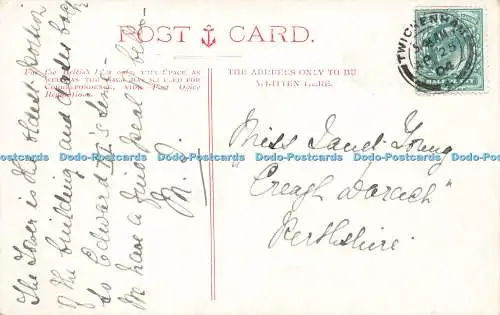 POST CARD.
For the British Isles only, THIS SPACE, AS
WELL AS THE BACK, MAY BE USED FOR
CORRESPONDENCE, VIDE Post Office
Regulations.
THE ADDRESS ONLY TO BE
WRITTEN HERE.
TWICKENHAM
04
HALFPENNY
The Tower is the oldest portion
of the building and dates back
to Edward time
We have a fine peal bells
M. J.
Miss Janet Young
"Creagh Darach"
Perthshire.
Dodo-Postcards Dodo-Postcards Dodo-Postcards Dodo-Postcards Dodo-Postcards Dodo-Postcards